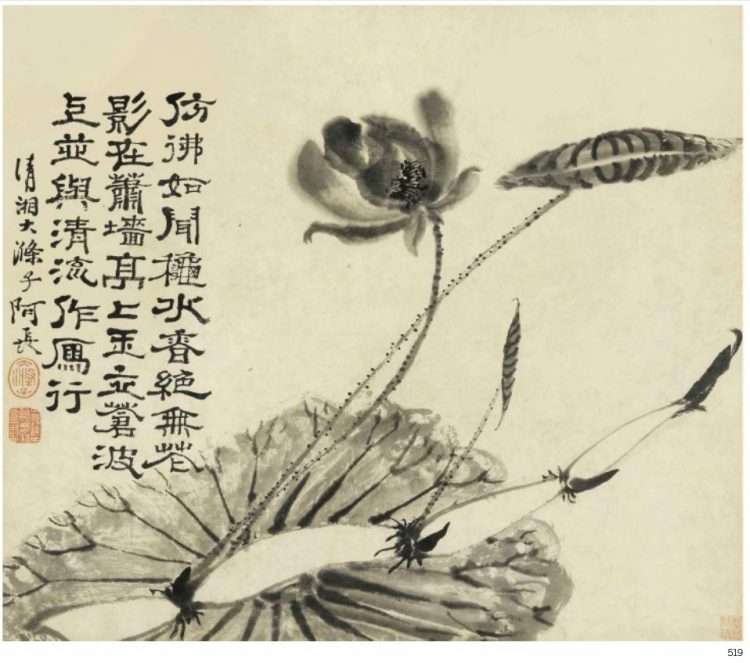 仿彿如聞龝水香絶無花
影在蕭墻亭〻玉立蒼波
上並與清流作鴈行
清湘大滌子阿長
519